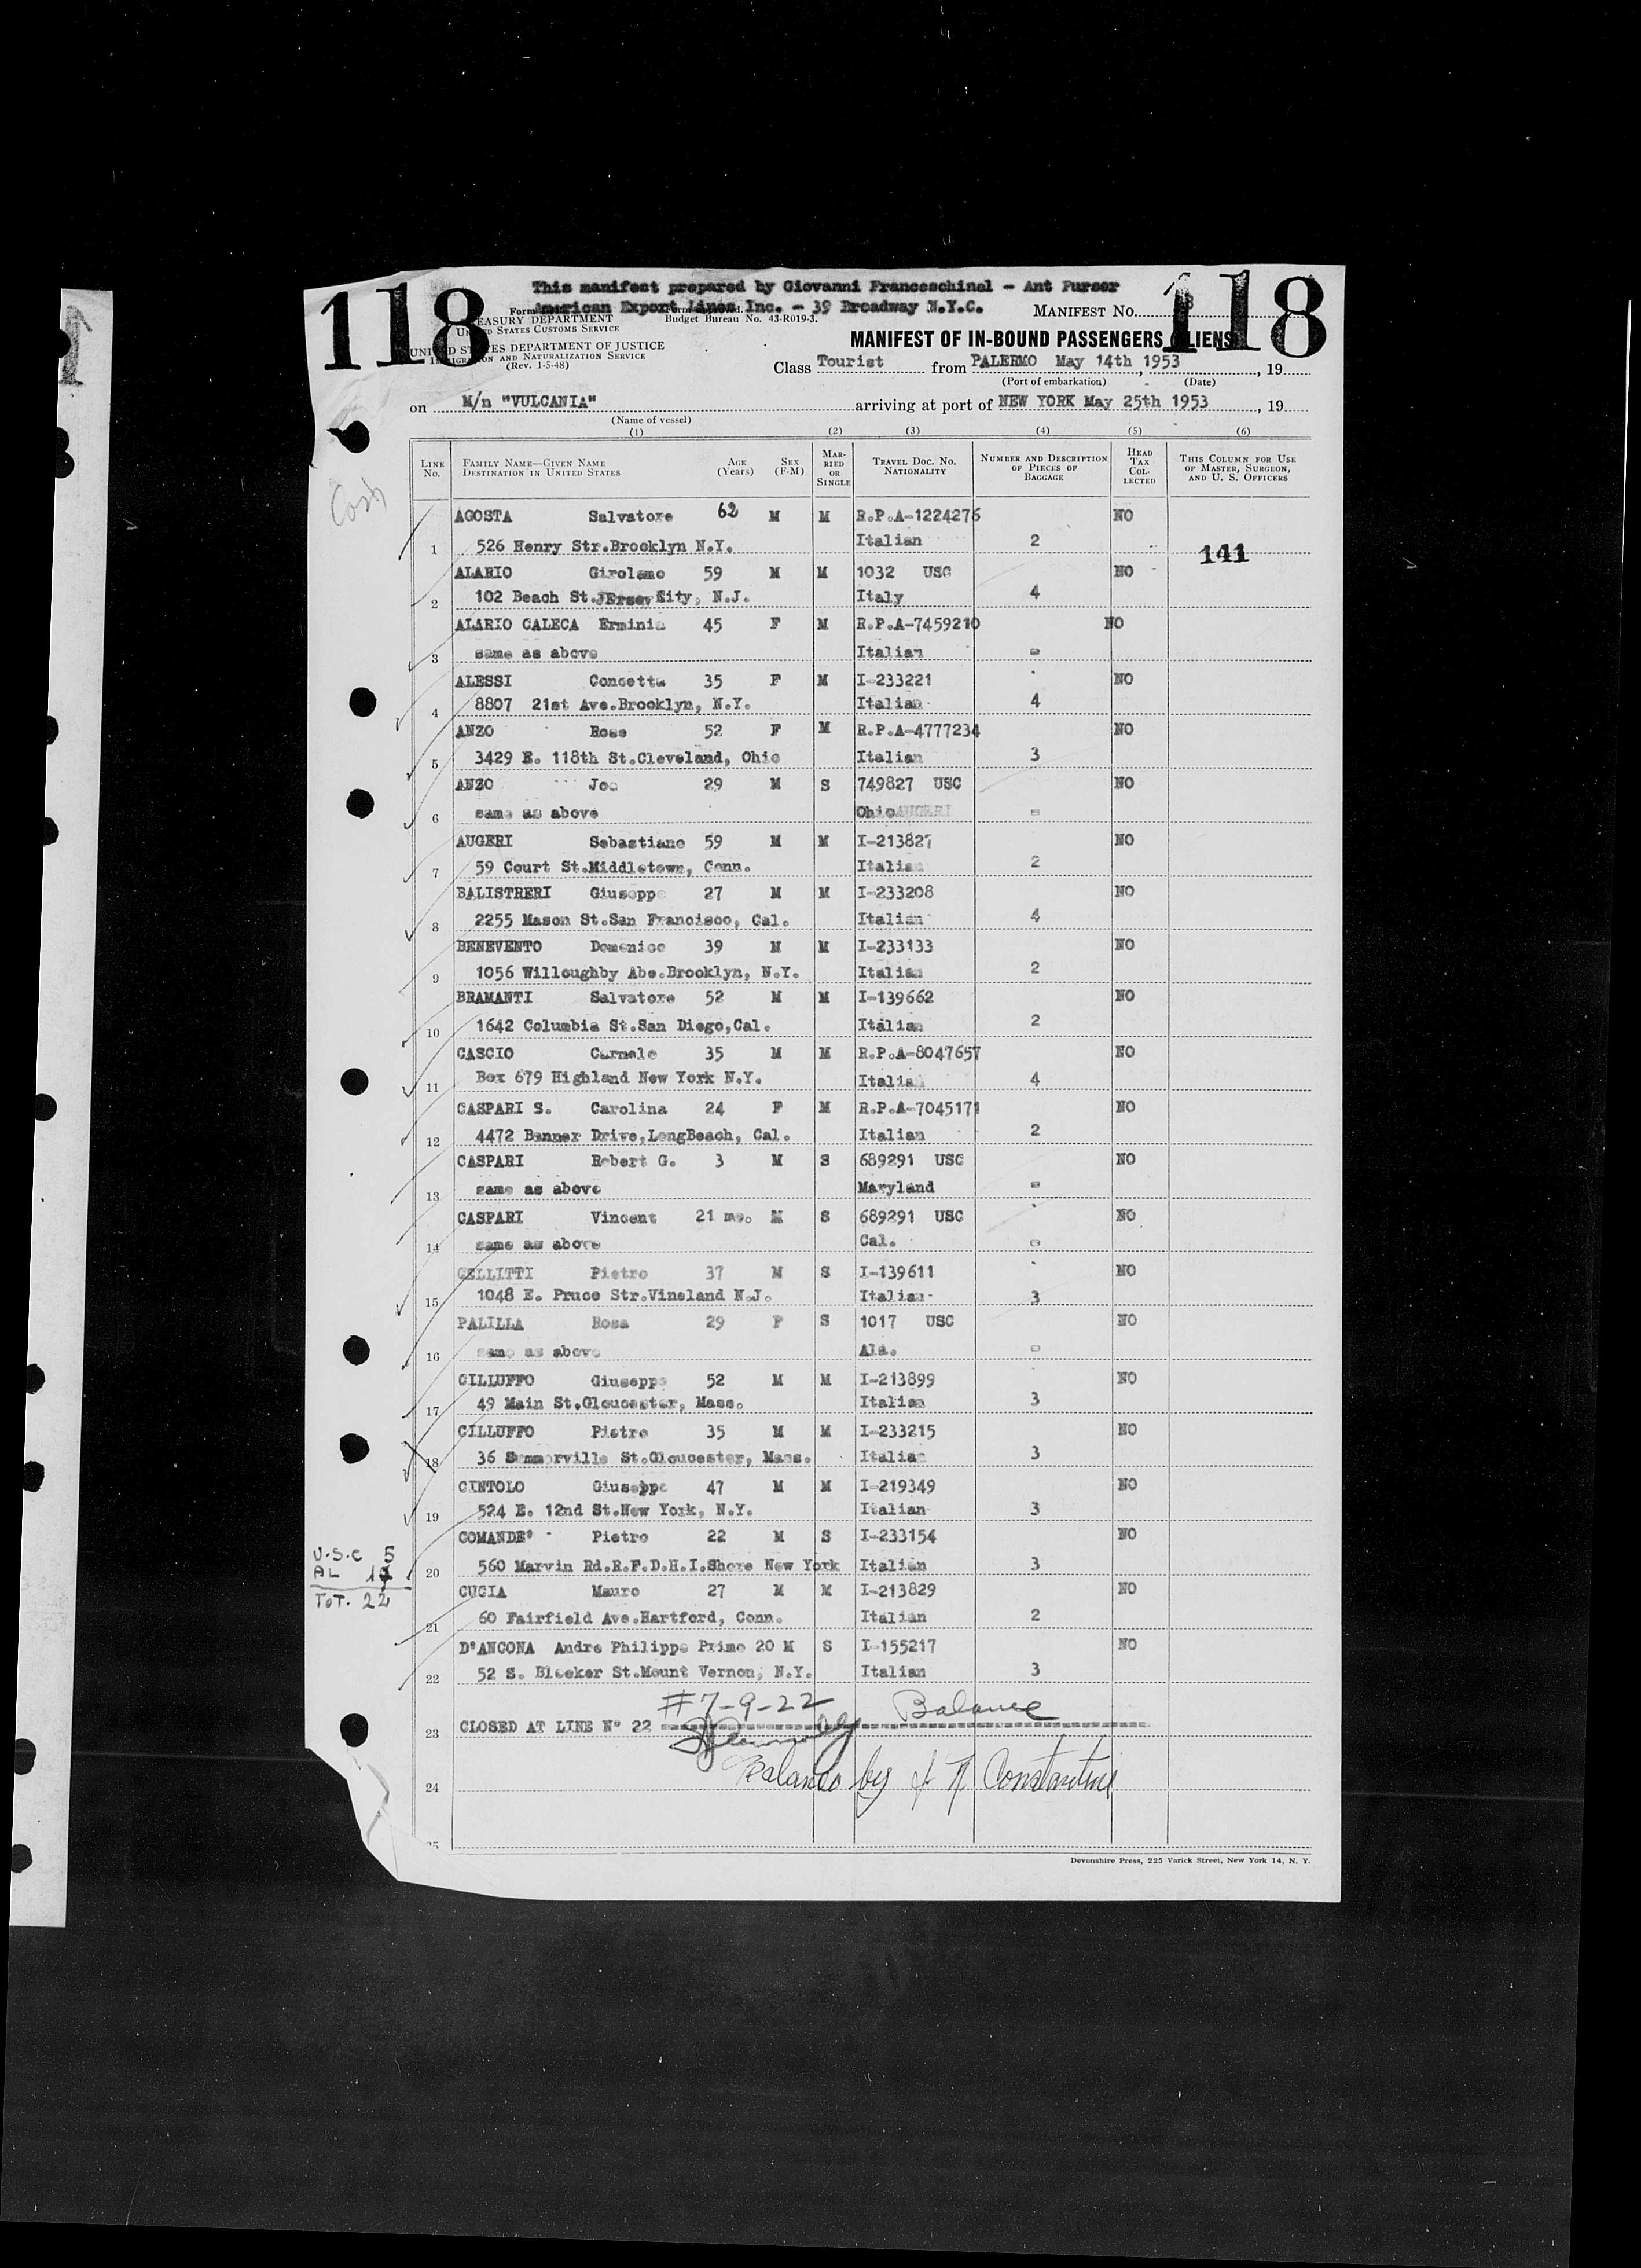 118
118
This manifest prepared by Giovanni Franceschinel - Ant Purser
American Export Lines Inc. - 39 Broadway N.Y.C.
Form
TREASURY DEPARTMENT
UNITED STATES CUSTOMS SERVICE
Budget Bureau No. 43-R019-3.
MANIFEST No.
UNITED STATES DEPARTMENT OF JUSTICE
IMMIGRATION AND NATURALIZATION SERVICE
(Rev. 1-5-48)
MANIFEST OF IN-BOUND PASSENGERS (ALIENS)
Class Tourist from PALERMO May 14th, 1953, 19
(Port of embarkation) (Date)
on M/n "VULCANIA" arriving at port of NEW YORK May 25th 1953, 19
(Name of vessel)
(1) (2) (3) (4) (5) (6)
LINE No. FAMILY NAME—GIVEN NAME DESTINATION IN UNITED STATES AGE (Years) SEX (F-M) MARRIED OR SINGLE TRAVEL DOC. NO. NATIONALITY NUMBER AND DESCRIPTION OF PIECES OF BAGGAGE HEAD TAX COLLECTED THIS COLUMN FOR USE OF MASTER, SURGEON, AND U. S. OFFICERS
Cosh
AGOSTA Salvatore 62 M M R.P.A-1224276 NO
1 526 Henry Str.Brooklyn N.Y. Italian 2 141
ALARIO Girolamo 59 M M 1032 USC NO
2 102 Beach St.JErsey City, N.J. Italy 4
ALARIO CALECA Erminia 45 F M R.P.A-7459210 NO
3 same as above Italian -
ALESSI Concetta 35 F M I-233221 NO
4 8807 21st Ave.Brooklyn, N.Y. Italian 4
ANZO Rose 52 F M R.P.A-4777234 NO
5 3429 E. 118th St.Cleveland, Ohio Italian 3
ANZO Joe 29 M S 749827 USC NO
6 same as above Ohio -
AUGERI Sebastiano 59 M M I-213827 NO
7 59 Court St.Middletown, Conn. Italian 2
BALISTRERI Giuseppe 27 M M I-233208 NO
8 2255 Mason St.San Francisco, Cal. Italian 4
BENEVENTO Domenico 39 M M I-233133 NO
9 1056 Willoughby Abe.Brooklyn, N.Y. Italian 2
BRAMANTI Salvatore 52 M M I-139662 NO
10 1642 Columbia St.San Diego,Cal. Italian 2
CASCIO Carmelo 35 M M R.P.A-8047657 NO
11 Box 679 Highland New York N.Y. Italian 4
CASPARI S. Carolina 24 F M R.P.A-7045171 NO
12 4472 Banner Drive,LongBeach, Cal. Italian 2
CASPARI Robert G. 3 M S 689291 USC NO
13 same as above Maryland -
CASPARI Vincent 21 mo. M S 689291 USC NO
14 same as above Cal. -
CELLITTI Pietro 37 M S I-139611 NO
15 1048 E. Pruce Str.Vineland N.J. Italian 3
PALILLA Rosa 29 F S 1017 USC NO
16 same as above Ala. -
CILLUFFO Giuseppe 52 M M I-213899 NO
17 49 Main St.Gloucester, Mass. Italian 3
CILLUFFO Pietro 35 M M I-233215 NO
18 36 Summorville St.Gloucester, Mass. Italian 3
CINTOLO Giuseppe 47 M M I-219349 NO
19 524 E. 12nd St.New York, N.Y. Italian 3
COMANDE' Pietro 22 M S I-233154 NO
20 560 Marvin Rd.R.F.D.H.I.Shore New York Italian 3
U.S.C 5
AL 17
TOT. 22
CUCIA Mauro 27 M M I-213829 NO
21 60 Fairfield Ave.Hartford, Conn. Italian 2
D'ANCONA Andre Philippe Primo 20 M S I-155217 NO
22 52 S. Bleeker St.Mount Vernon, N.Y. Italian 3
#7-9-22 Balance
23 CLOSED AT LINE N° 22
Balance by Constantine
24
25
Devonshire Press, 225 Varick Street, New York 14, N. Y.